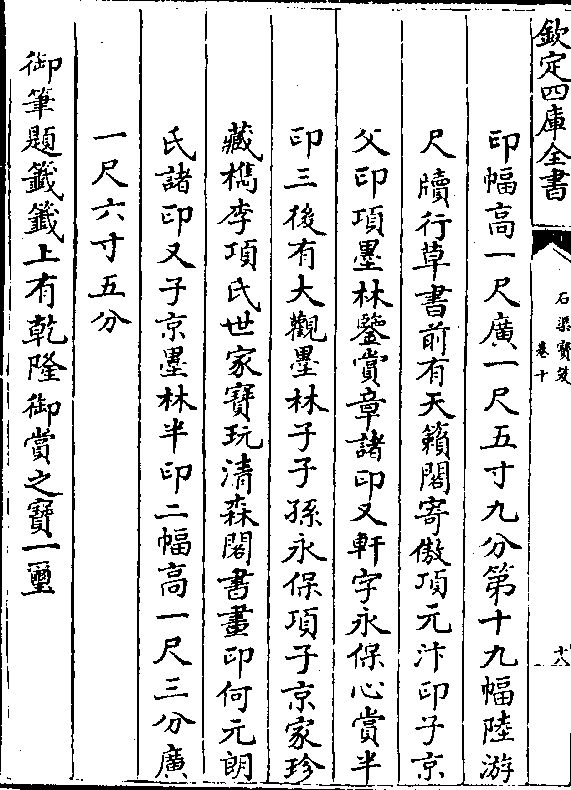 欽定四庫全書
石渠寶笈
卷十
十八
印幅高一尺廣一尺五寸九分第十九幅陸游
尺牘行草書前有天籟閣寄傲項元汴印子京
父印項墨林鑒賞章諸印又軒字永保心賞半
印三後有大觀墨林子子孫永保項子京家珍
藏檇李項氏世家寶玩清森閣書畫印何元朗
氏諸印又子京墨林半印二幅高一尺三分廣
一尺六寸五分
御筆題籤籤上有乾隆御賞之寶一璽